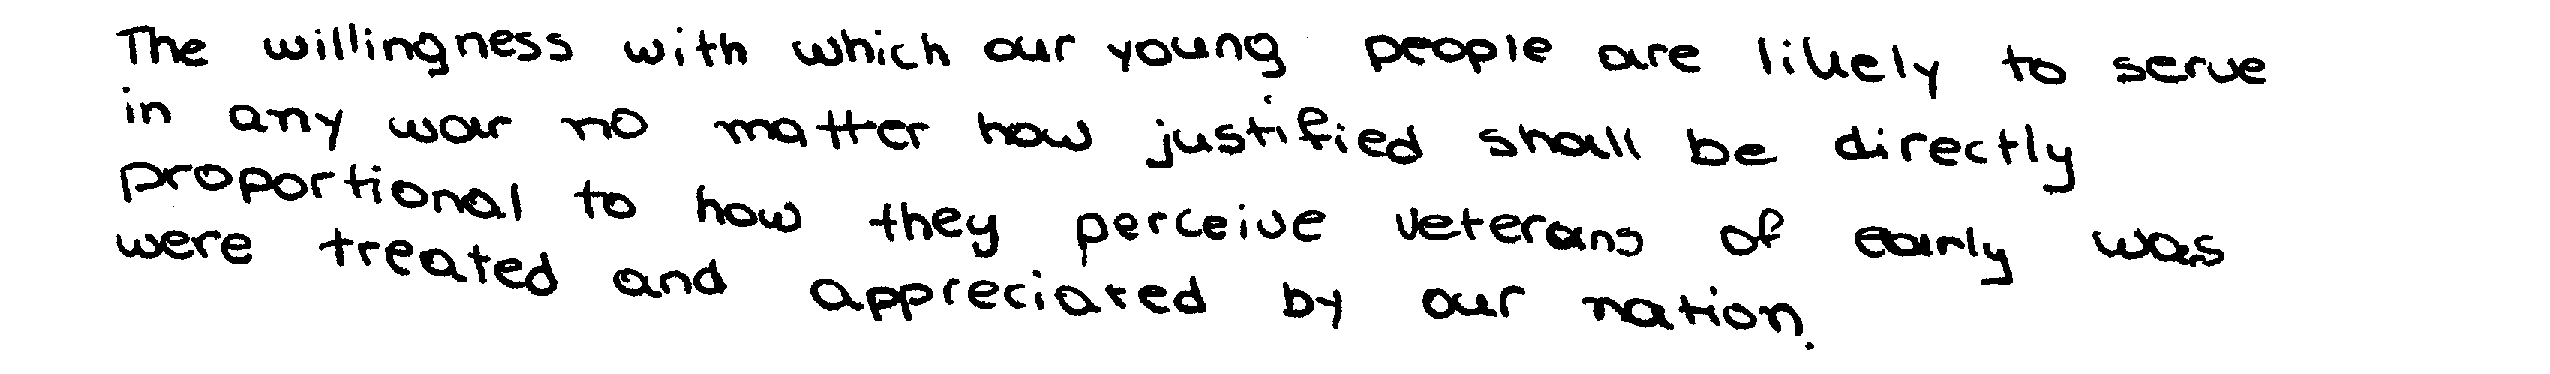 The willingness with which our young people are likely to serve
in any war no matter how justified shall be directly
proportional to how they perceive veterans of early was
were treated and appreciated by our nation.